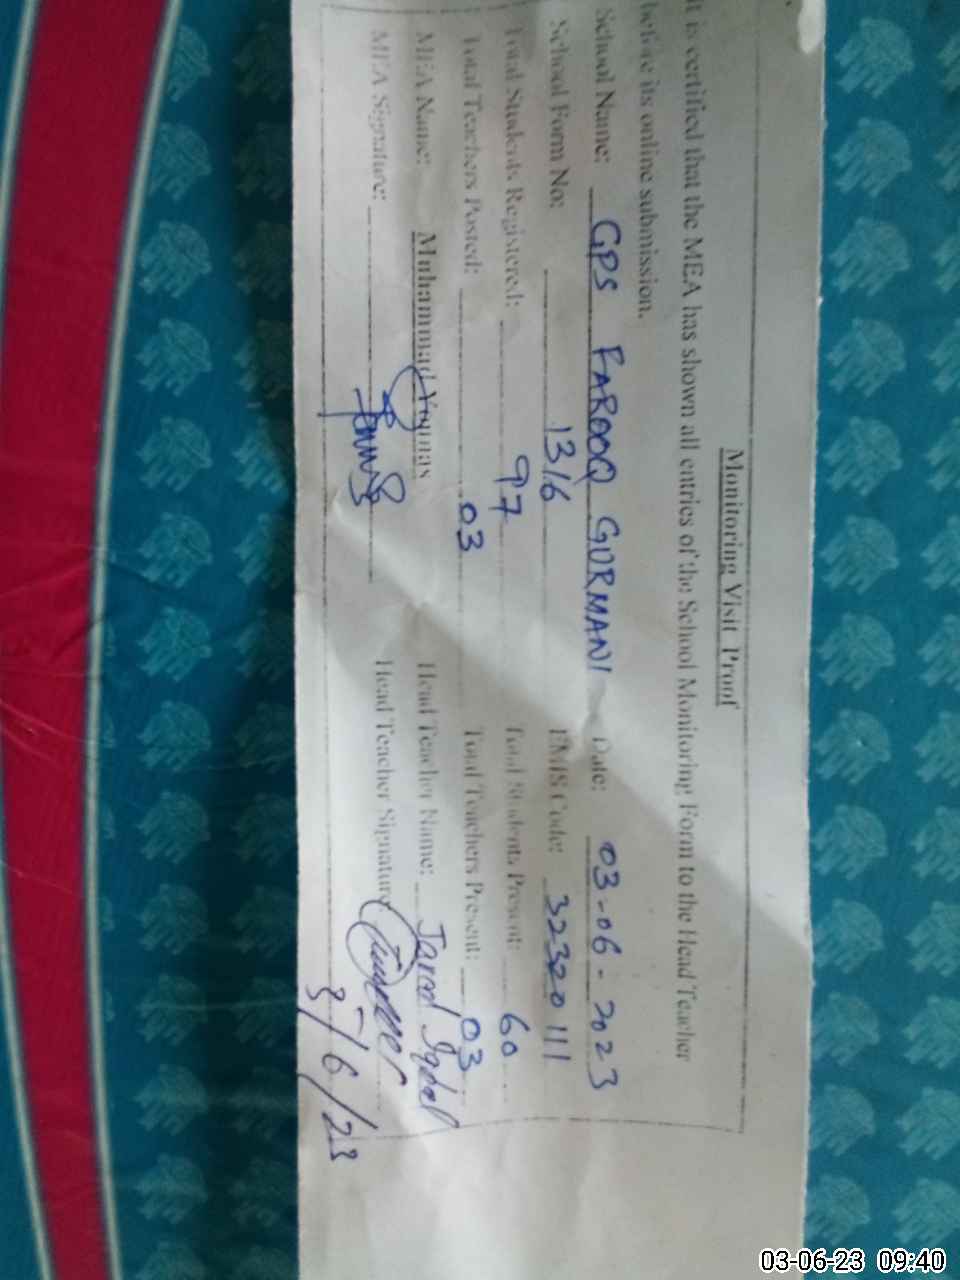 Monitoring Visit Proof
It is certified that the MEA has shown all entries of the School Monitoring Form to the Head Teacher
before its online submission.
School Name: GPS FAROOQ GURMANI Date: 03-06-2023
School Form No: 1316 EMIS Code: 32320111
Total Students Registered: 97 Total Students Present: 60
Total Teachers Posted: 03 Total Teachers Present: 03
MEA Name: Muhammad Younas Head Teacher Name: Javed Iqbal
MEA Signature: Head Teacher Signature
3/6/23
03-06-23 09:40